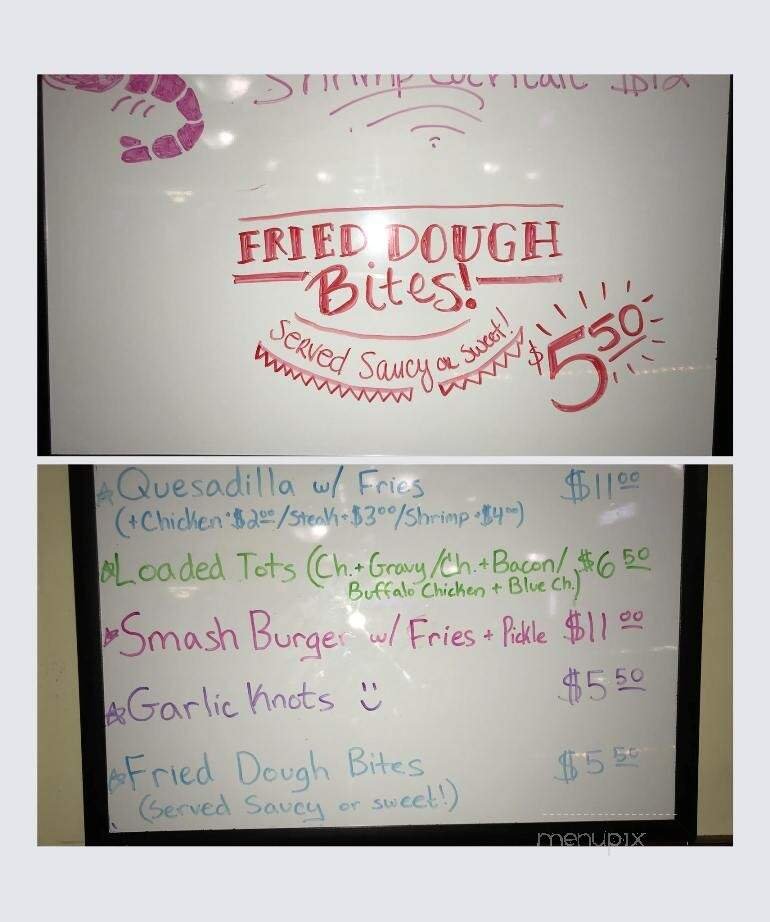 Shrimp Cocktail $12
FRIED DOUGH
Bites!
Served Saucy or Sweet!
$5 50
☆Quesadilla w/ Fries $11 00
(+Chicken•$2 00/Steak•$3 00/Shrimp•$4 00)
☆Loaded Tots (Ch.+Gravy/Ch.+Bacon/ $6 50
Buffalo Chicken + Blue Ch.)
☆Smash Burger w/ Fries + Pickle $11 00
☆Garlic Knots :) $5 50
☆Fried Dough Bites $5 50
(Served Saucy or sweet!)
menupix